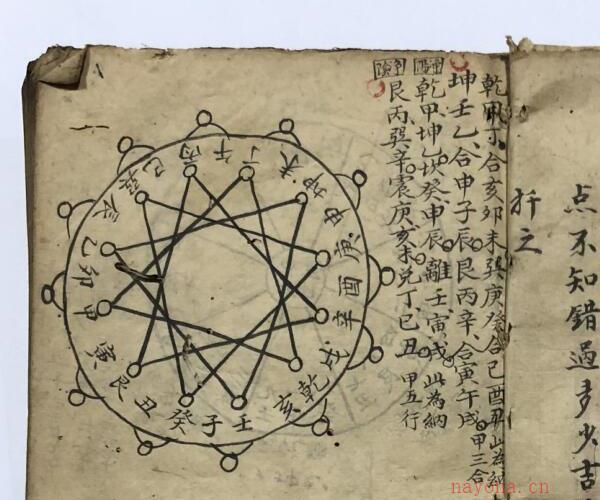 点不知錯過多少吉
折之
乾甲丁合亥卯未巽庚癸合巳酉丑此為納
甲三合
坤壬乙合申子辰艮丙辛合寅午戌
乾甲坤乙坎癸申辰離壬寅戌此為納
艮丙巽辛震庚亥未兌丁巳丑甲五行
丙午丁未坤申庚酉辛戌乾亥壬子癸丑艮寅甲卯乙辰巽巳
nayona.cn